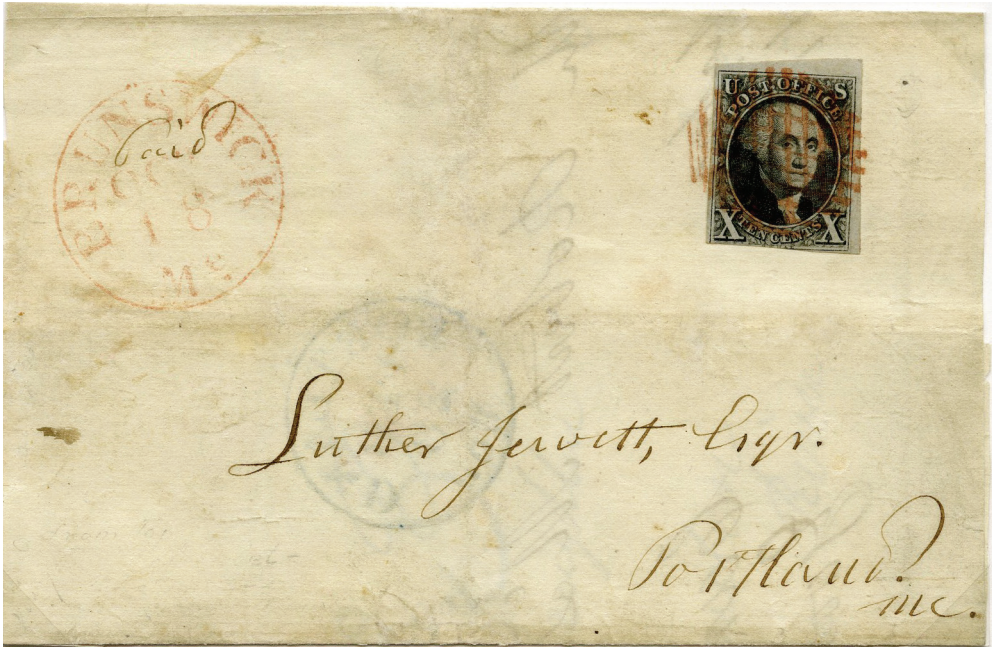 BRUNSWICK
Paid
18
Me
U S
POST OFFICE
X TEN CENTS X
Luther Jewett, Esqr.
Portland.
Me.